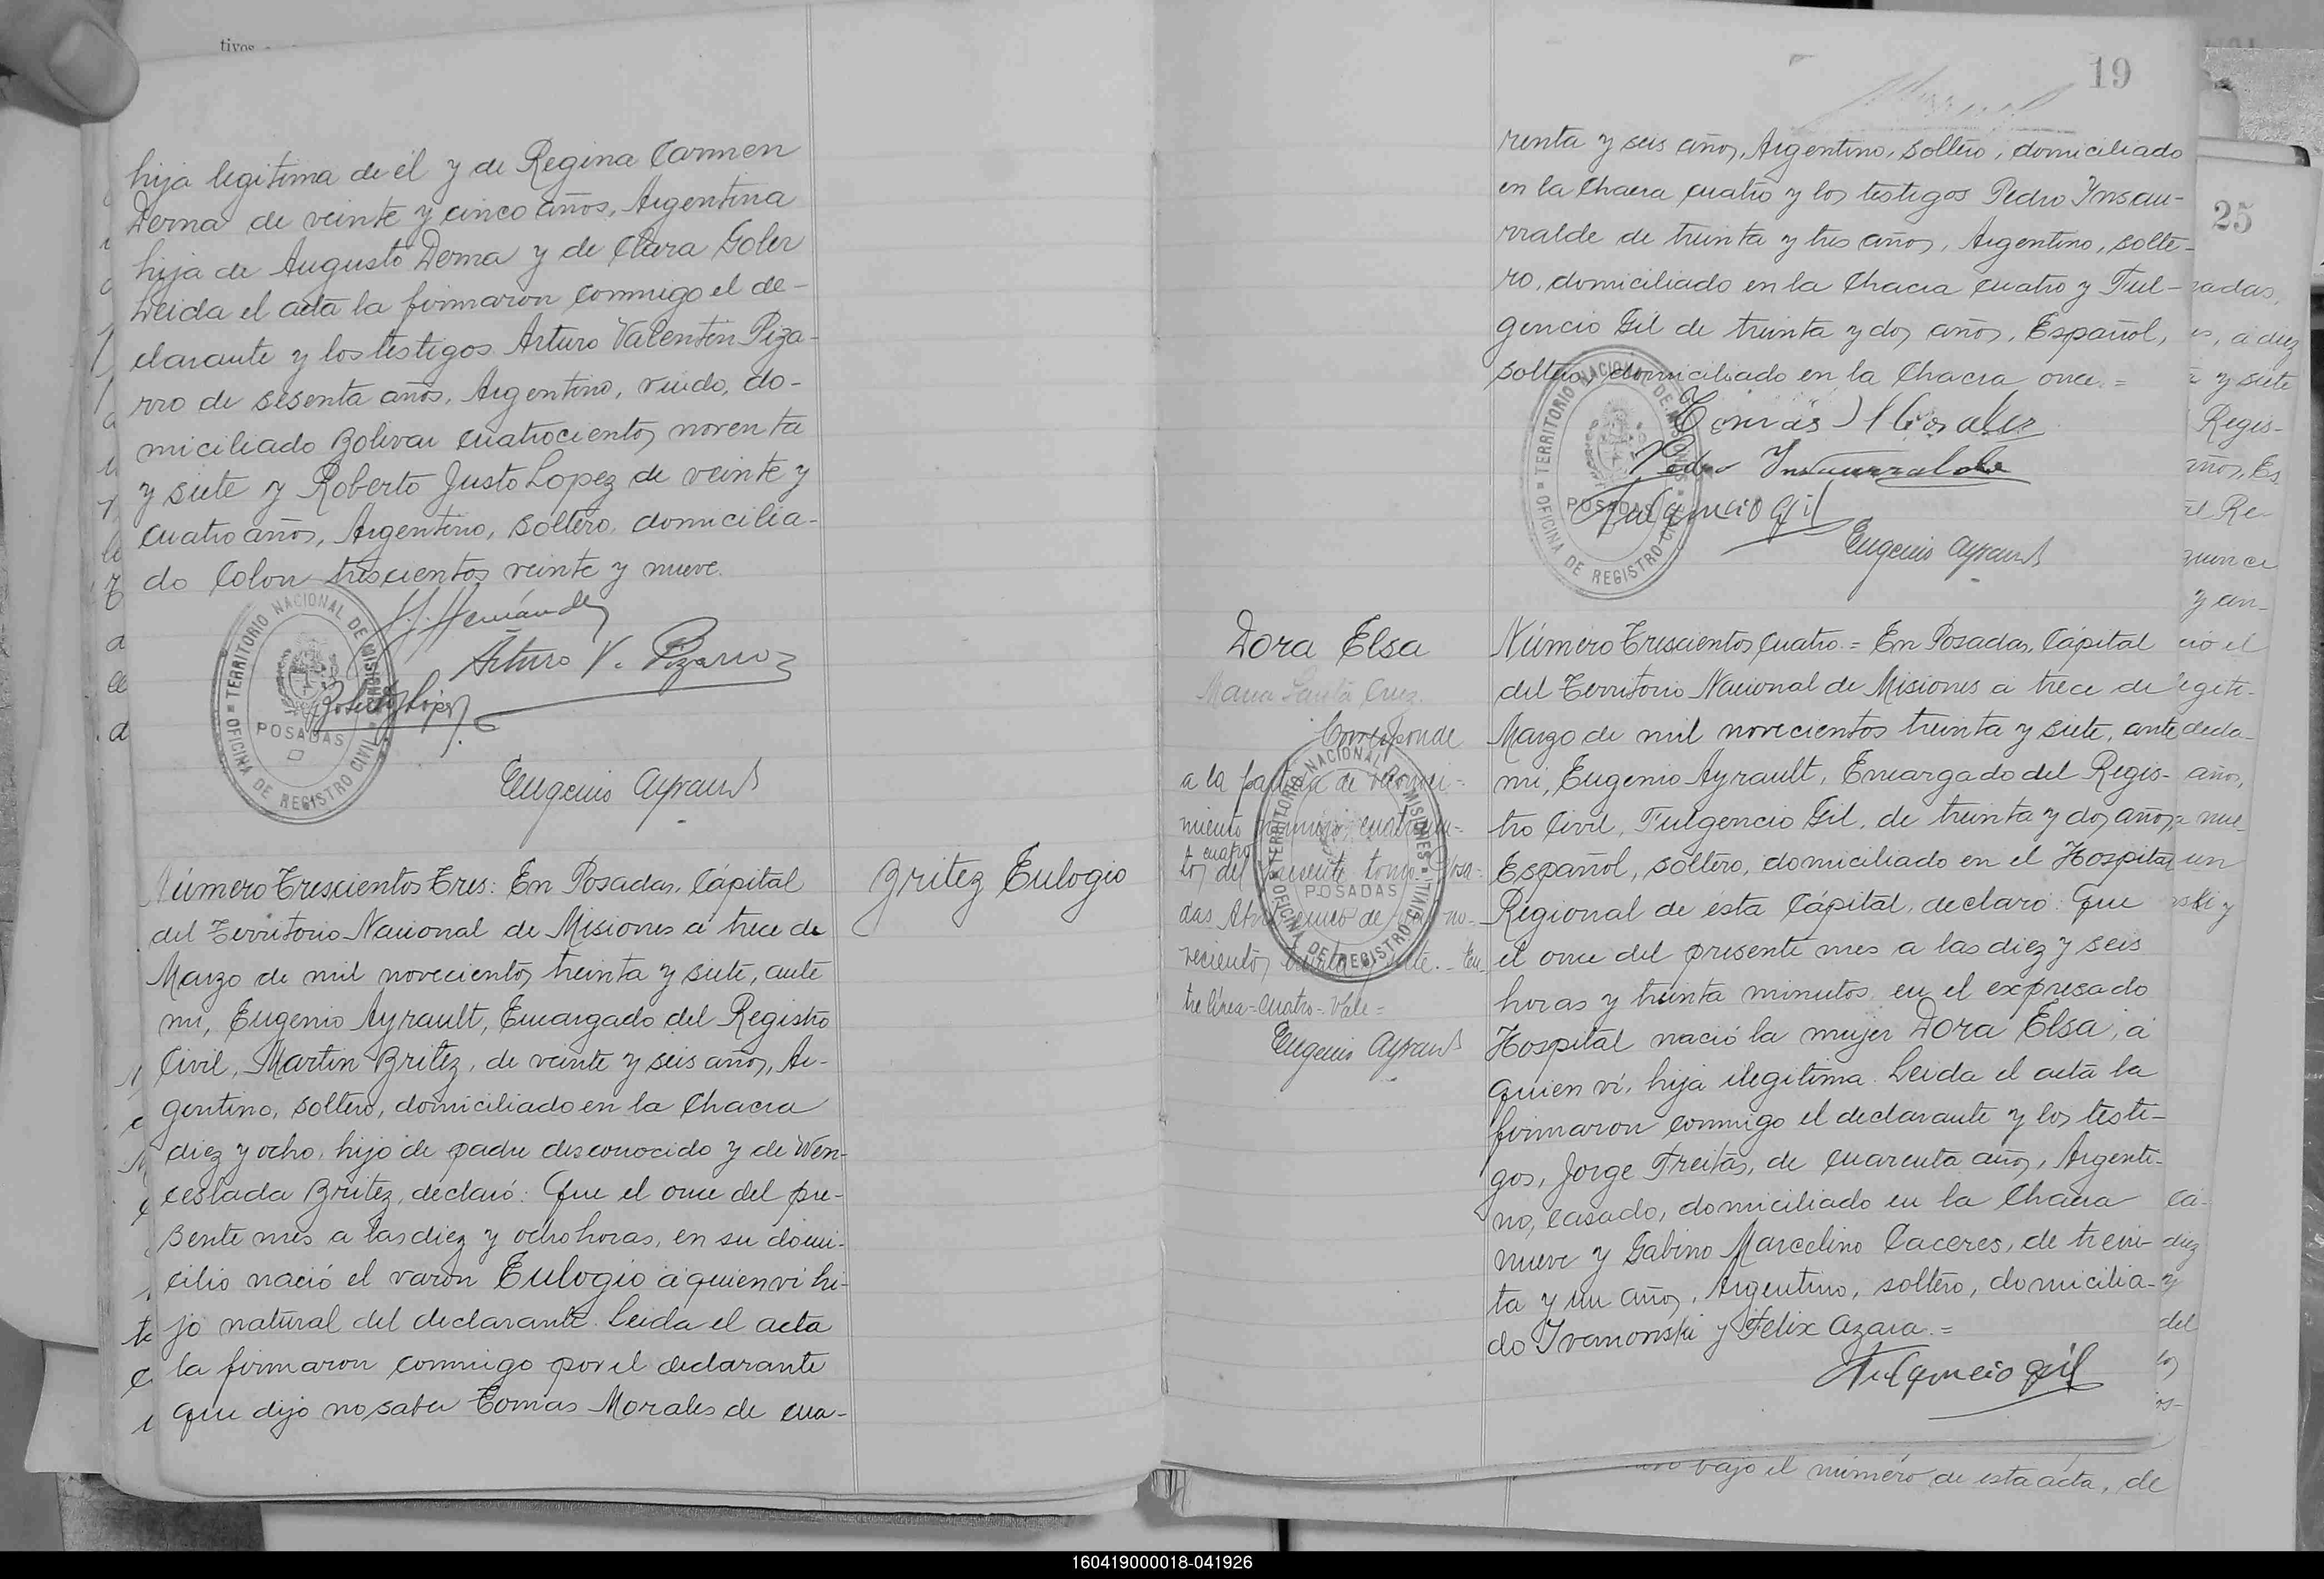 tivos
hija legitima de él y de Regina Carmen
Derna de veinte y cinco años, Argentina
hija de Augusto Derna y de Clara Goler
Leida el acta la firmaron conmigo el de-
clarante y los testigos Arturo Valentin Piza-
rro de sesenta años, Argentino, viudo, do-
miciliado Bolivar cuatrocientos noventa
y siete y Roberto Justo Lopez de veinte y
cuatro años, Argentino, soltero, domicilia-
do Colon trescientos veinte y nueve.
J. Hernández
Arturo V. Pizarro
Eugenio Ayrault
TERRITORIO NACIONAL DE MISIONES
POSADAS
OFICINA DE REGISTRO CIVIL
Britez Eulogio
Número Trescientos Tres: En Posadas, Cápital
del Territorio Nacional de Misiones a trece de
Marzo de mil novecientos treinta y siete, ante
mi, Eugenio Ayrault, Encargado del Registro
Civil, Martin Britez, de veinte y seis años, Ar-
gentino, soltero, domiciliado en la Chacra
diez y ocho, hijo de padre desconocido y de Wen-
ceslada Britez, declaró: Que el once del pre-
sente mes a las diez y ocho horas, en su domi-
cilio nació el varón Eulogio a quien vi hi-
jo natural del declarante. Leida el acta
la firmaron conmigo por el declarante
que dijo no saber Tomas Morales de cua-
19
renta y seis años, Argentino, soltero, domiciliado
en la Chacra cuatro y los testigos Pedro Insau-
rralde de treinta y tres años, Argentino, solte-
ro, domiciliado en la Chacra cuatro y Ful-
gencio Gil de treinta y dos años, Español,
soltero, domiciliado en la Chacra once. =
Tomás Morales
Pedro Insaurralde
Fulgencio Gil
Eugenio Ayrault
TERRITORIO NACIONAL DE MISIONES
POSADAS
OFICINA DE REGISTRO CIVIL
Dora Elsa
Maria Santa Cruz.
Corresponde
a la partida de
miento número
cuatro
tos del presente tomo. Posa-
das, Abril cinco de no-
vecientos treinta y siete. - En-
tre línea = cuatro = Vale =
Eugenio Ayrault
TERRITORIO NACIONAL DE MISIONES
POSADAS
OFICINA DE REGISTRO CIVIL
Número Trescientos Cuatro = En Posadas, Cápital
del Territorio Nacional de Misiones a trece de
Marzo de mil novecientos treinta y siete, ante
mi, Eugenio Ayrault, Encargado del Regis-
tro Civil, Fulgencio Gil, de treinta y dos años,
Español, soltero, domiciliado en el Hospital
Regional de ésta Cápital, declaró: Que
el once del presente mes a las diez y seis
horas y treinta minutos, en el expresado
Hospital nació la mujer Dora Elsa, a
quien vi, hija ilegitima. Leida el acta la
firmaron conmigo el declarante y los testi-
gos, Jorge Freitas, de cuarenta años, Argenti-
no, casado, domiciliado en la Chacra
nueve y Gabino Marcelino Caceres, de trein-
ta y un años, Argentino, soltero, domicilia-
do Ivanonski y Felix Azara. =
Fulgencio Gil
25
radas,
a diez
y siete
Regis-
años, Es
Re-
quence
y an-
el
legiti-
años,
un
y
Cá-
diez
y
del
los
bajo el número de esta acta, de
160419000018-041926